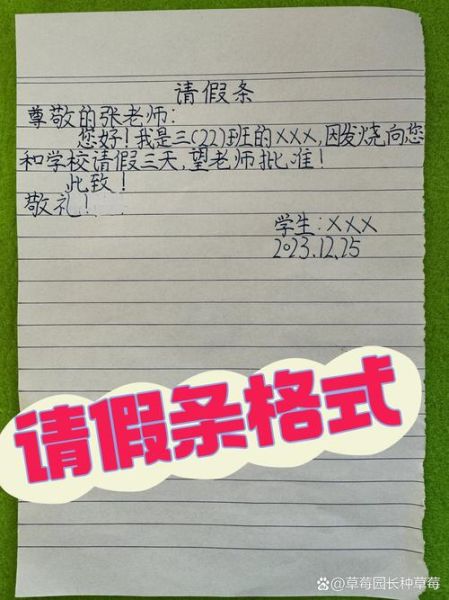 请假条
尊敬的张老师:
您好!我是三(22)班的XXX,因发烧向您
和学校请假三天,望老师批准!
此致!
敬礼!
学生:XXX
2023.12.25
请假条格式
@草莓园长种草莓